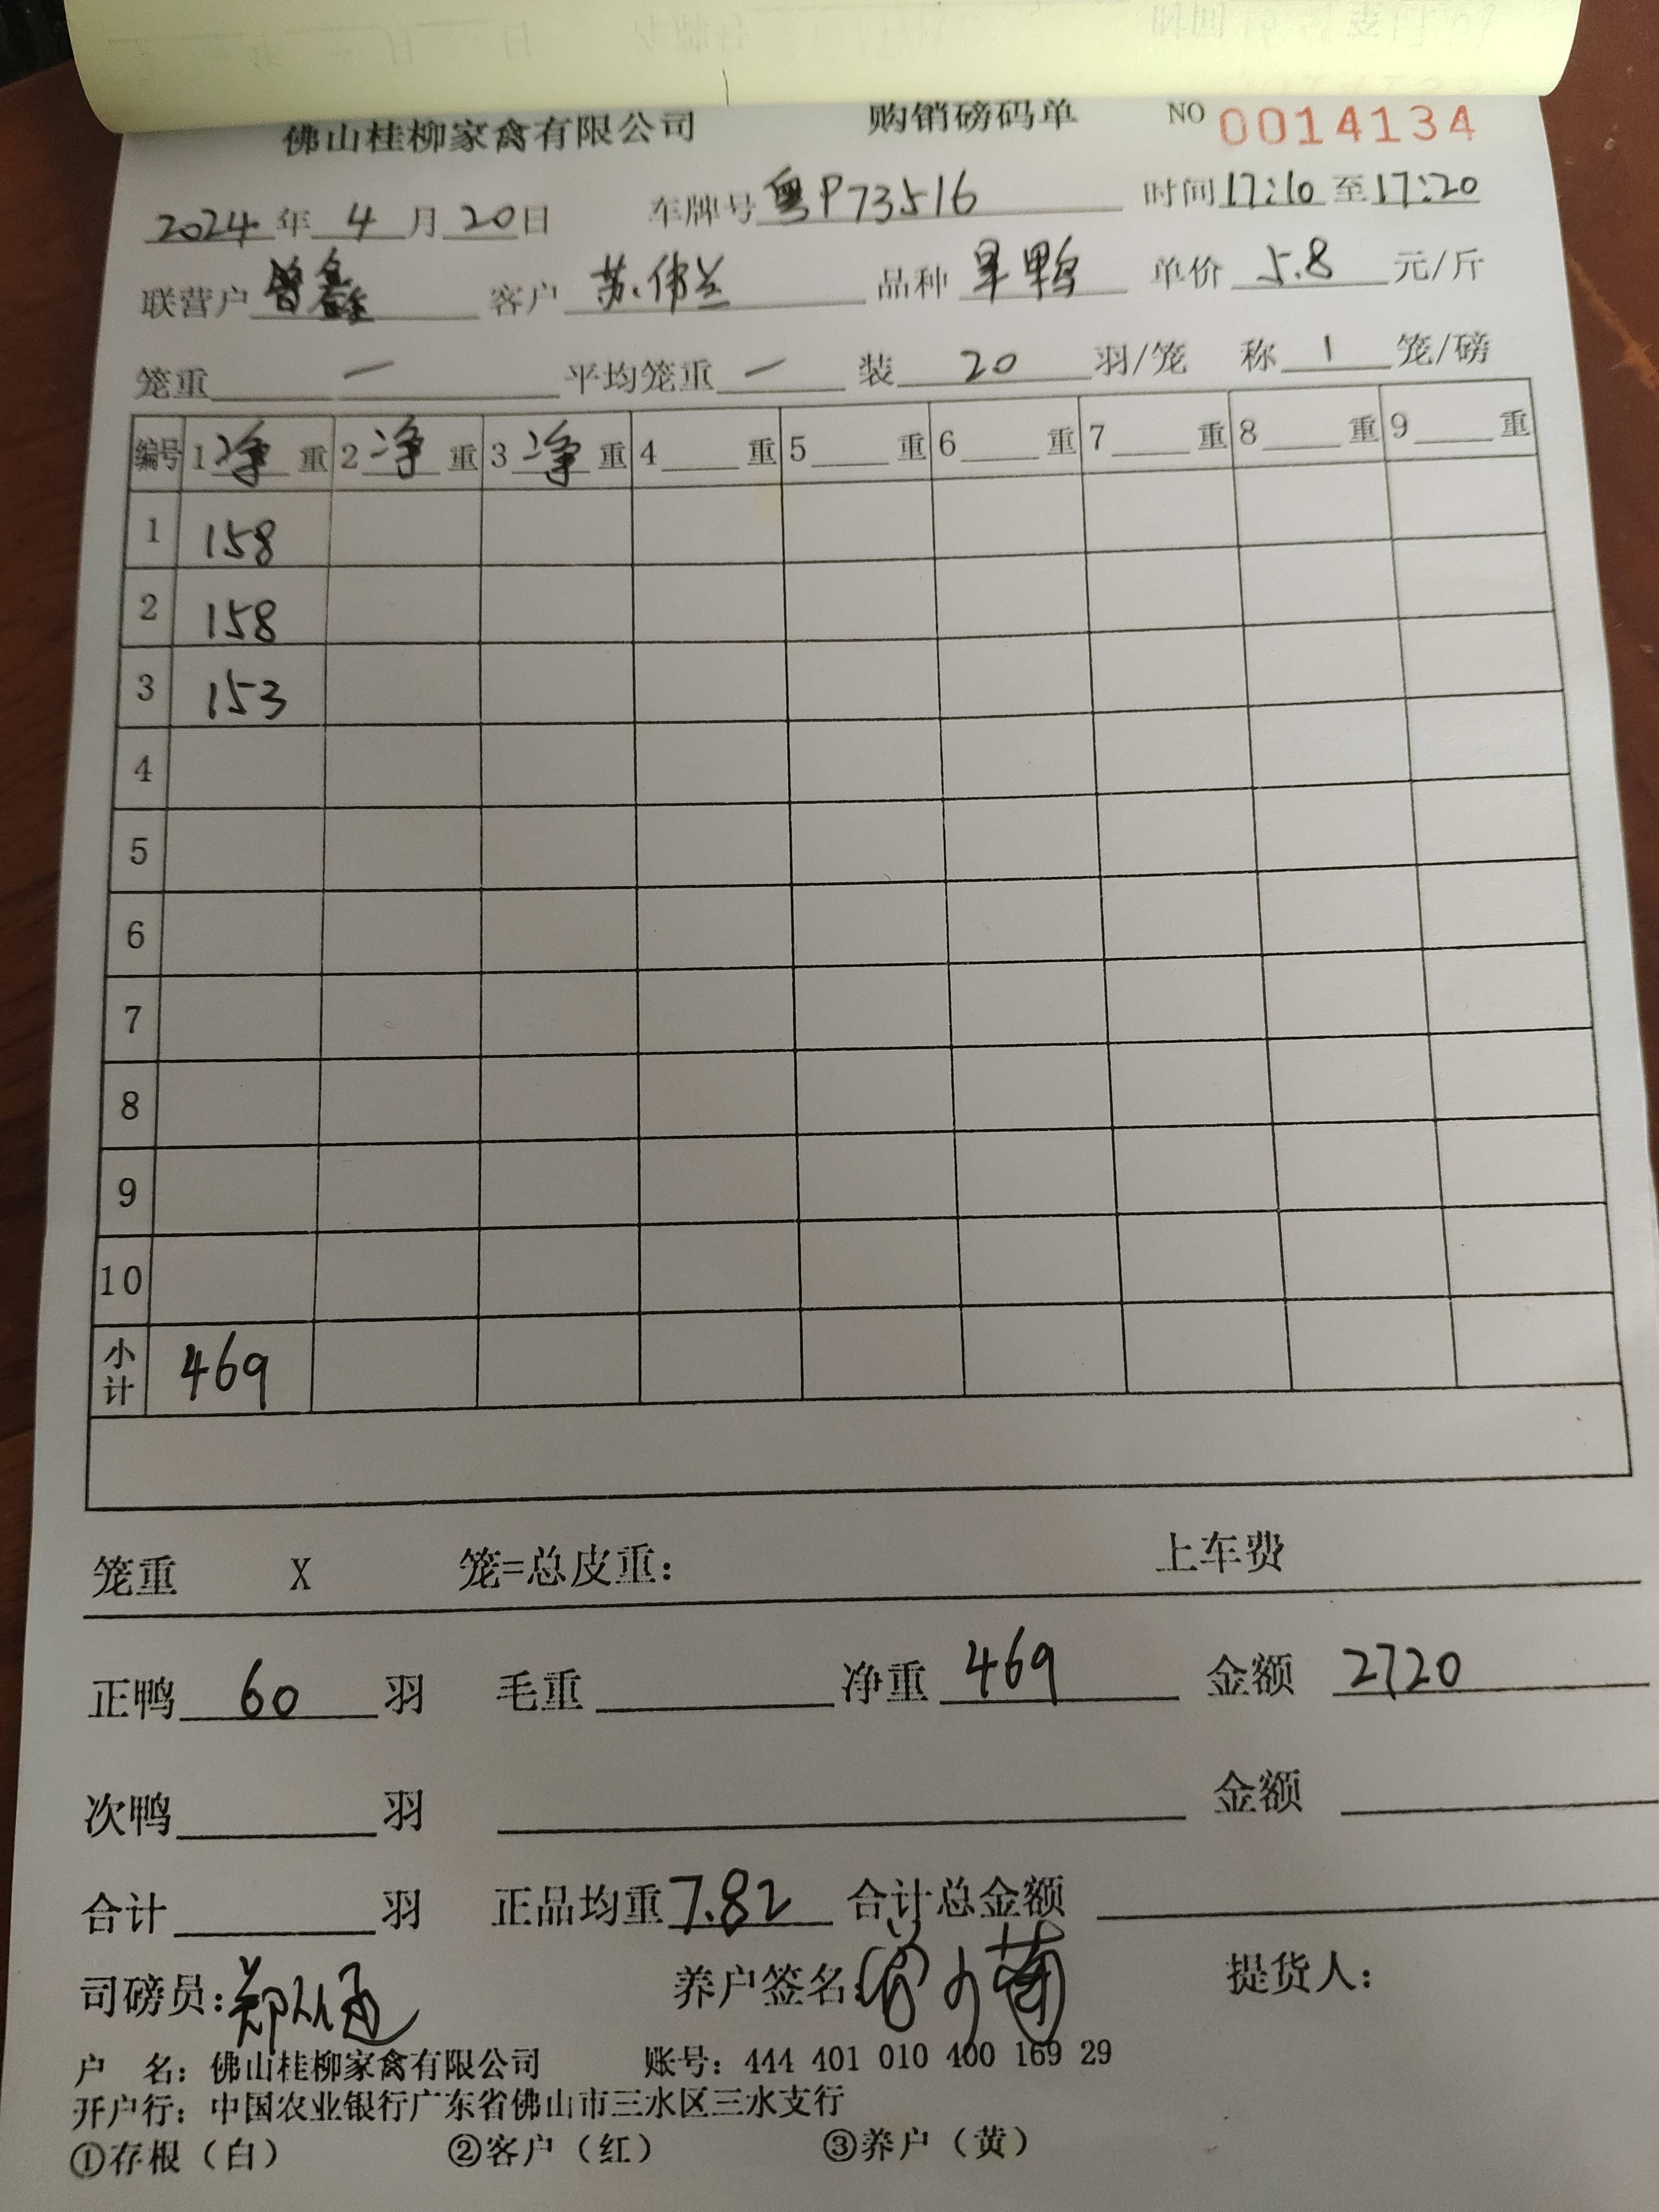 佛山桂柳家禽有限公司 购销磅码单 NO 0014134
2024年4月20日 车牌号粤P73516 时间17:10至17:20
联营户曾鑫 客户苏伟兰 品种旱鸭 单价5.8元/斤
笼重 一 平均笼重 一 装20羽/笼 称1笼/磅
编号 1净重 2净重 3净重 4重 5重 6重 7重 8重 9重
1 158
2 158
3 153
4
5
6
7
8
9
10
小计 469
笼重 X 笼=总皮重: 上车费
正鸭60羽 毛重 净重469 金额2720
次鸭 羽 金额
合计 羽 正品均重7.82 合计总金额
司磅员:郑 养户签名: 提货人:
户 名: 佛山桂柳家禽有限公司 账号: 444 401 010 400 169 29
开户行: 中国农业银行广东省佛山市三水区三水支行
①存根(白) ②客户(红) ③养户(黄)